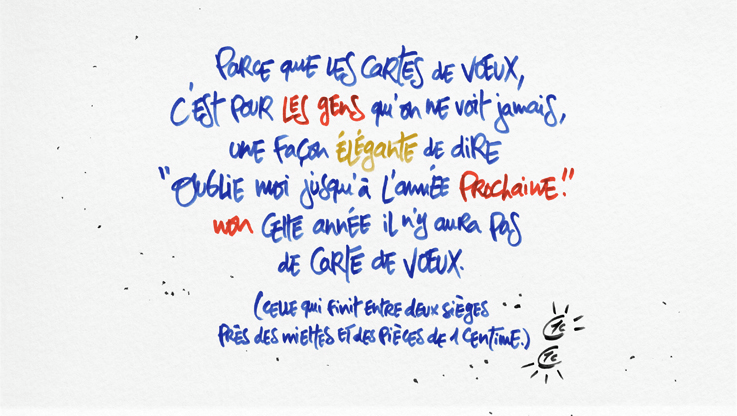 Parce que les cartes de vœux,
c'est pour les gens qu'on ne voit jamais,
une façon élégante de dire
"Oublie moi jusqu'à l'année prochaine."
non cette année il n'y aura pas
de carte de vœux.
(celle qui finit entre deux sièges
près des miettes et des pièces de 1 centime.)
1c
1c